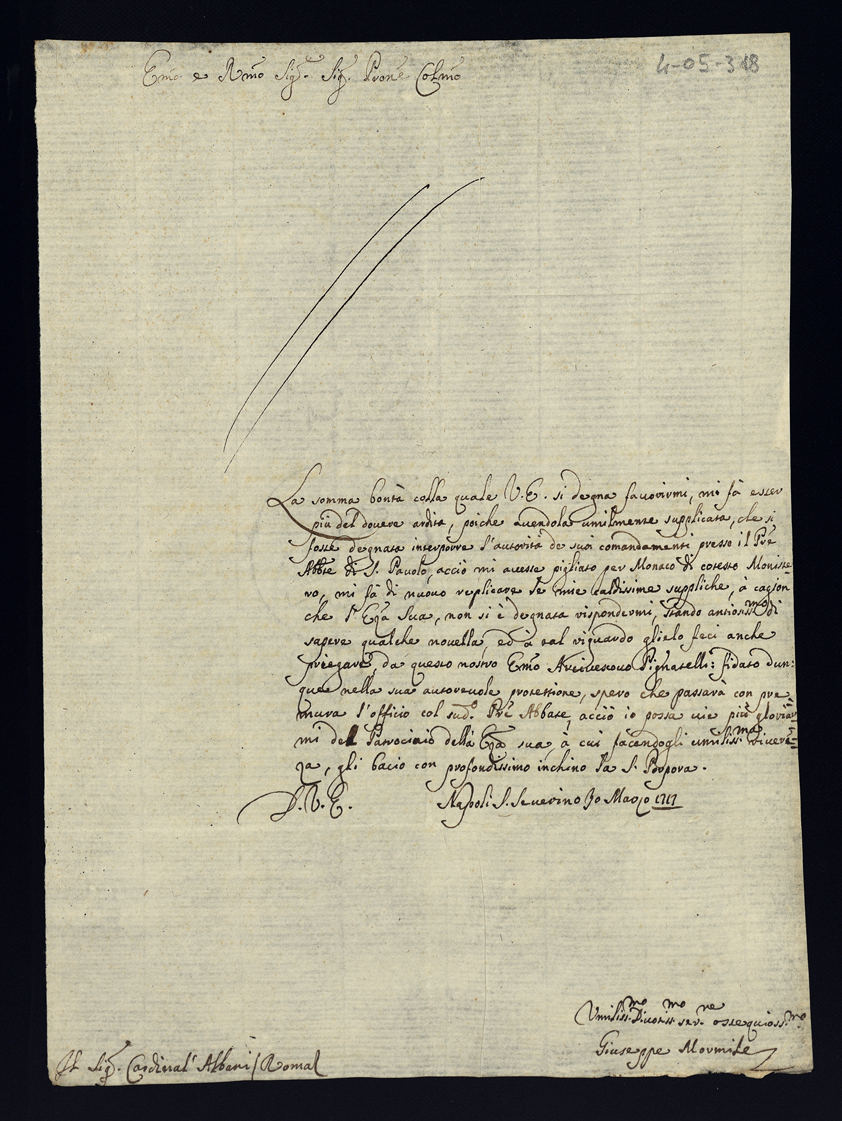 4-05-318
Emo e Rmo Sig.r Sig.r Prone Colmo
La somma bontà colla quale V.E. si degna favorirmi, mi fà esser
più del dovere ardita, poiche avendola umilmente supplicata, che si
fosse degnata interporre l'autorità de suoi comandamenti presso il Pre
Abbte di S. Pavolo, acciò mi avesse pigliato per Monaco di cotesto Moniste=
ro, mi fà di nuovo replicare le mie caldissime suppliche, à cagion
che l'Eza Sua, non si è degnata rispondermi, stando ansiosissmo di
sapere qualche novella, ed à tal riguardo glielo feci anche
priegare, da questo nostro Emo Arcivescovo Pignatelli: fidato dun:
que nella sua autorevole protettione, spero che passarà con pre
mura l'officio col sud.o Pre Abbate, acciò io possa vie più gloriar=
mi del Patrocinio della Eza sua, à cui facendogli umilissma rivere=
za, gli bacio con profondissimo inchino la S. Porpora.
D.V.E. Napoli S. Severino 30 Marzo 1717
Umiliss.mo Divotiss.mo ser.re ossequioss.mo
Giuseppe Mormile
Sig.r Cardinal' Albani / Roma